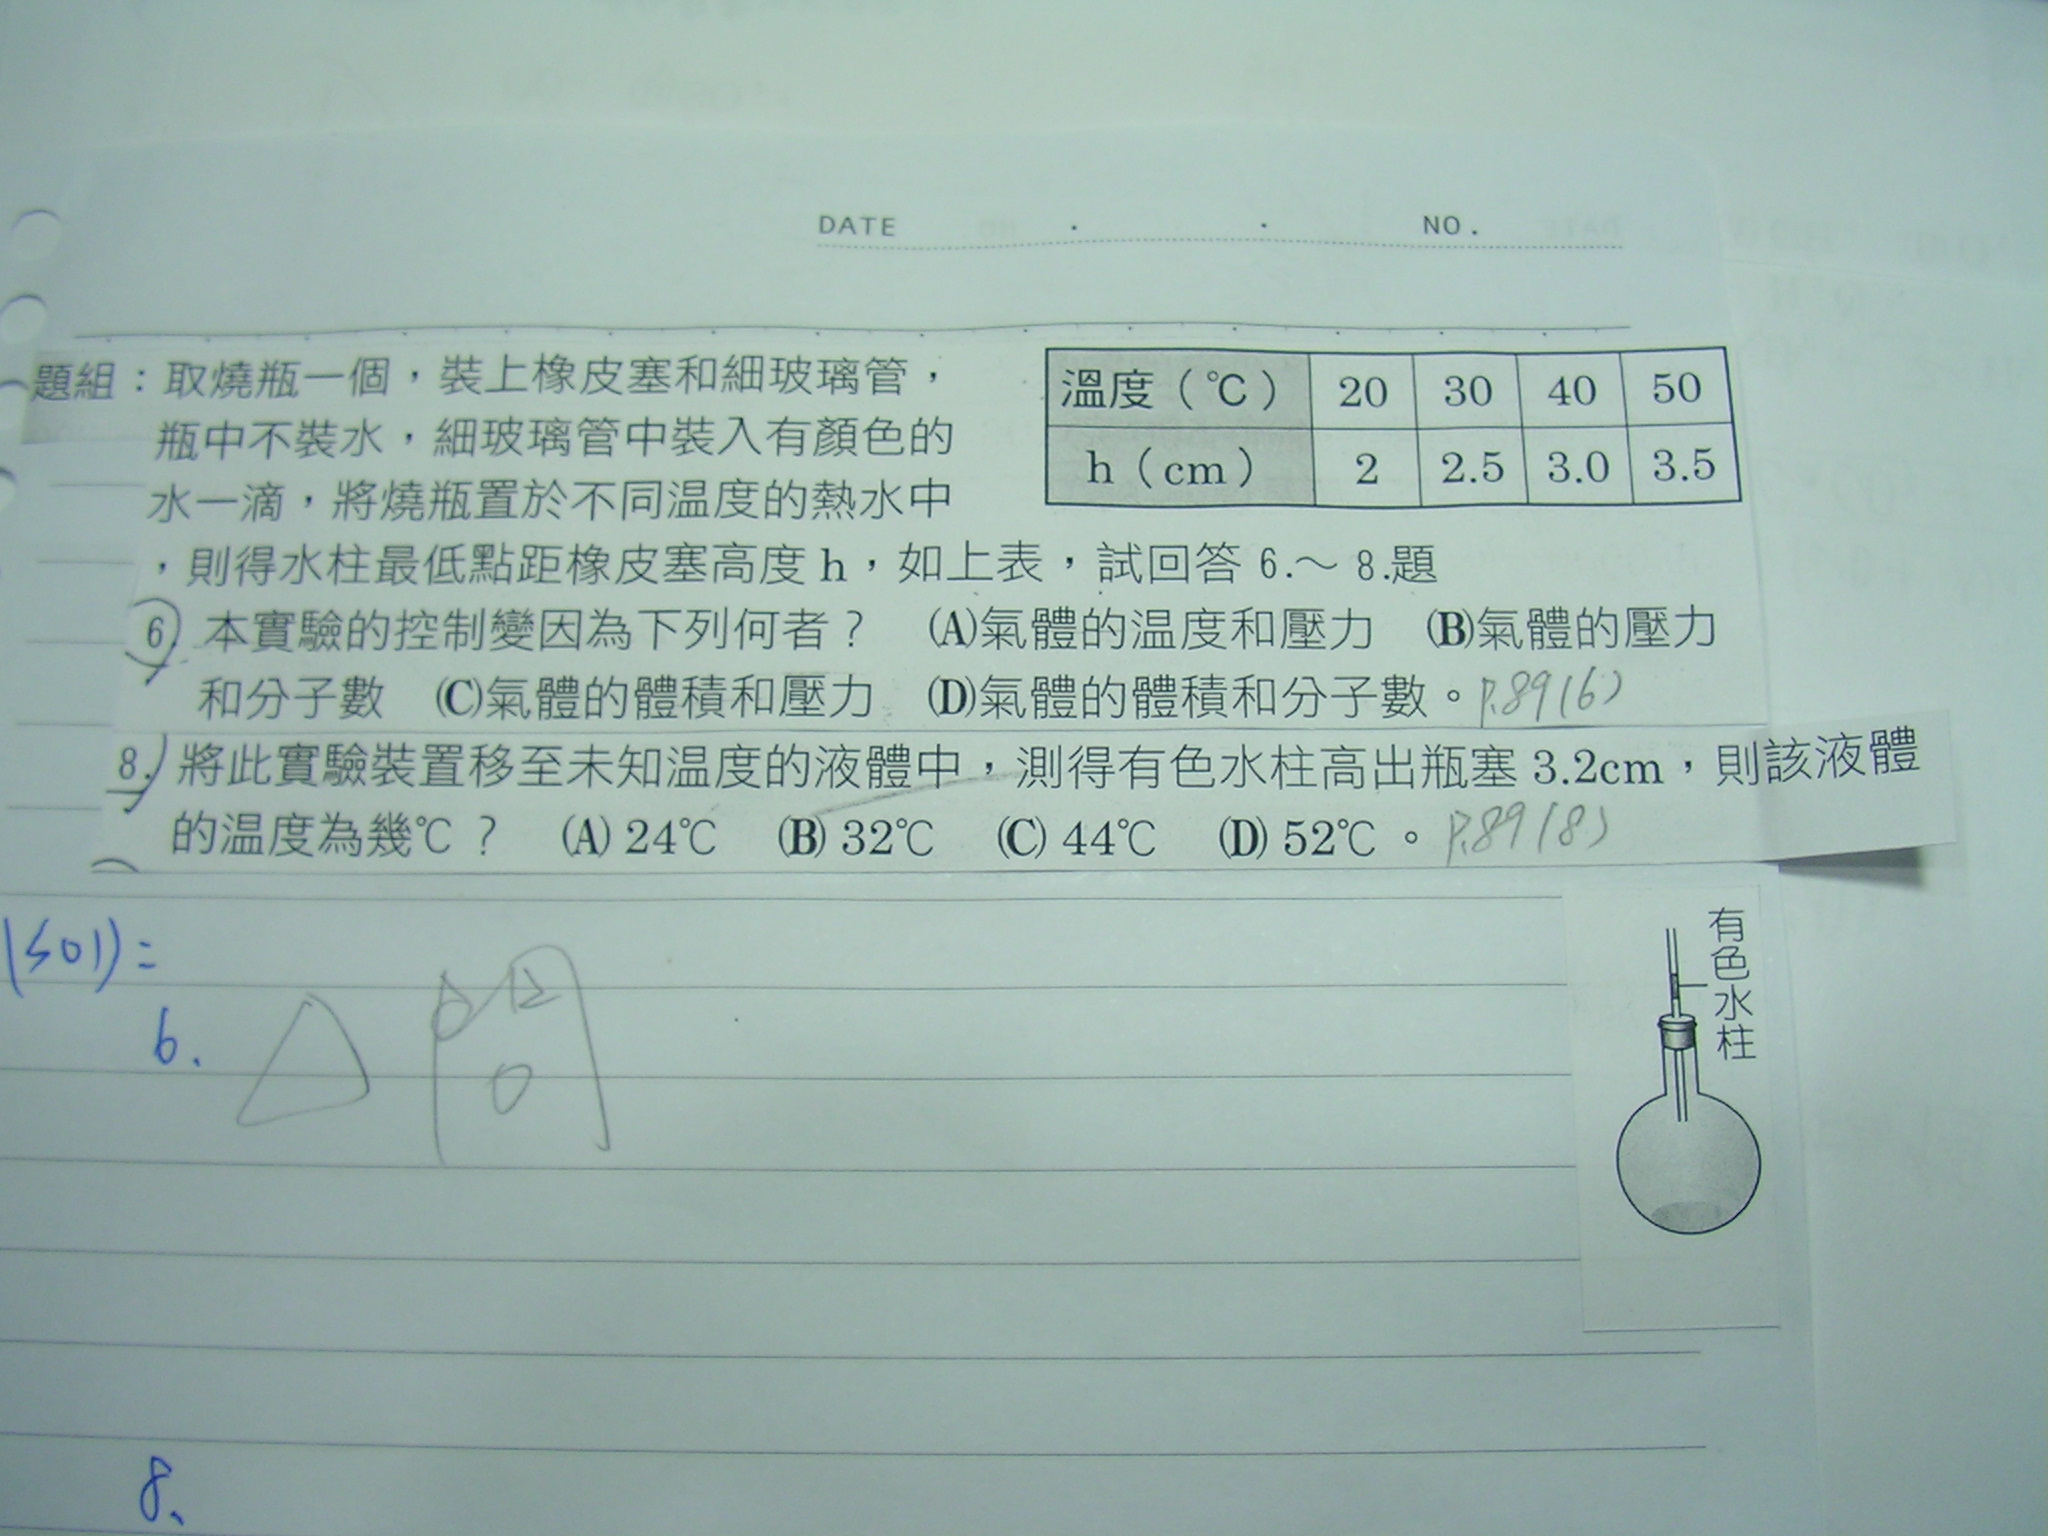 DATE . . NO.
題組：取燒瓶一個，裝上橡皮塞和細玻璃管，
瓶中不裝水，細玻璃管中裝入有顏色的
水一滴，將燒瓶置於不同温度的熱水中
，則得水柱最低點距橡皮塞高度h，如上表，試回答6.～8.題
溫度（℃） 20 30 40 50
h（cm） 2 2.5 3.0 3.5
6. 本實驗的控制變因為下列何者？ (A)氣體的温度和壓力 (B)氣體的壓力
和分子數 (C)氣體的體積和壓力 (D)氣體的體積和分子數。P.89(6)
8. 將此實驗裝置移至未知温度的液體中，測得有色水柱高出瓶塞3.2cm，則該液體
的温度為幾℃？ (A) 24℃ (B) 32℃ (C) 44℃ (D) 52℃。P.89(8)
有色水柱
(sol):
6.
8.